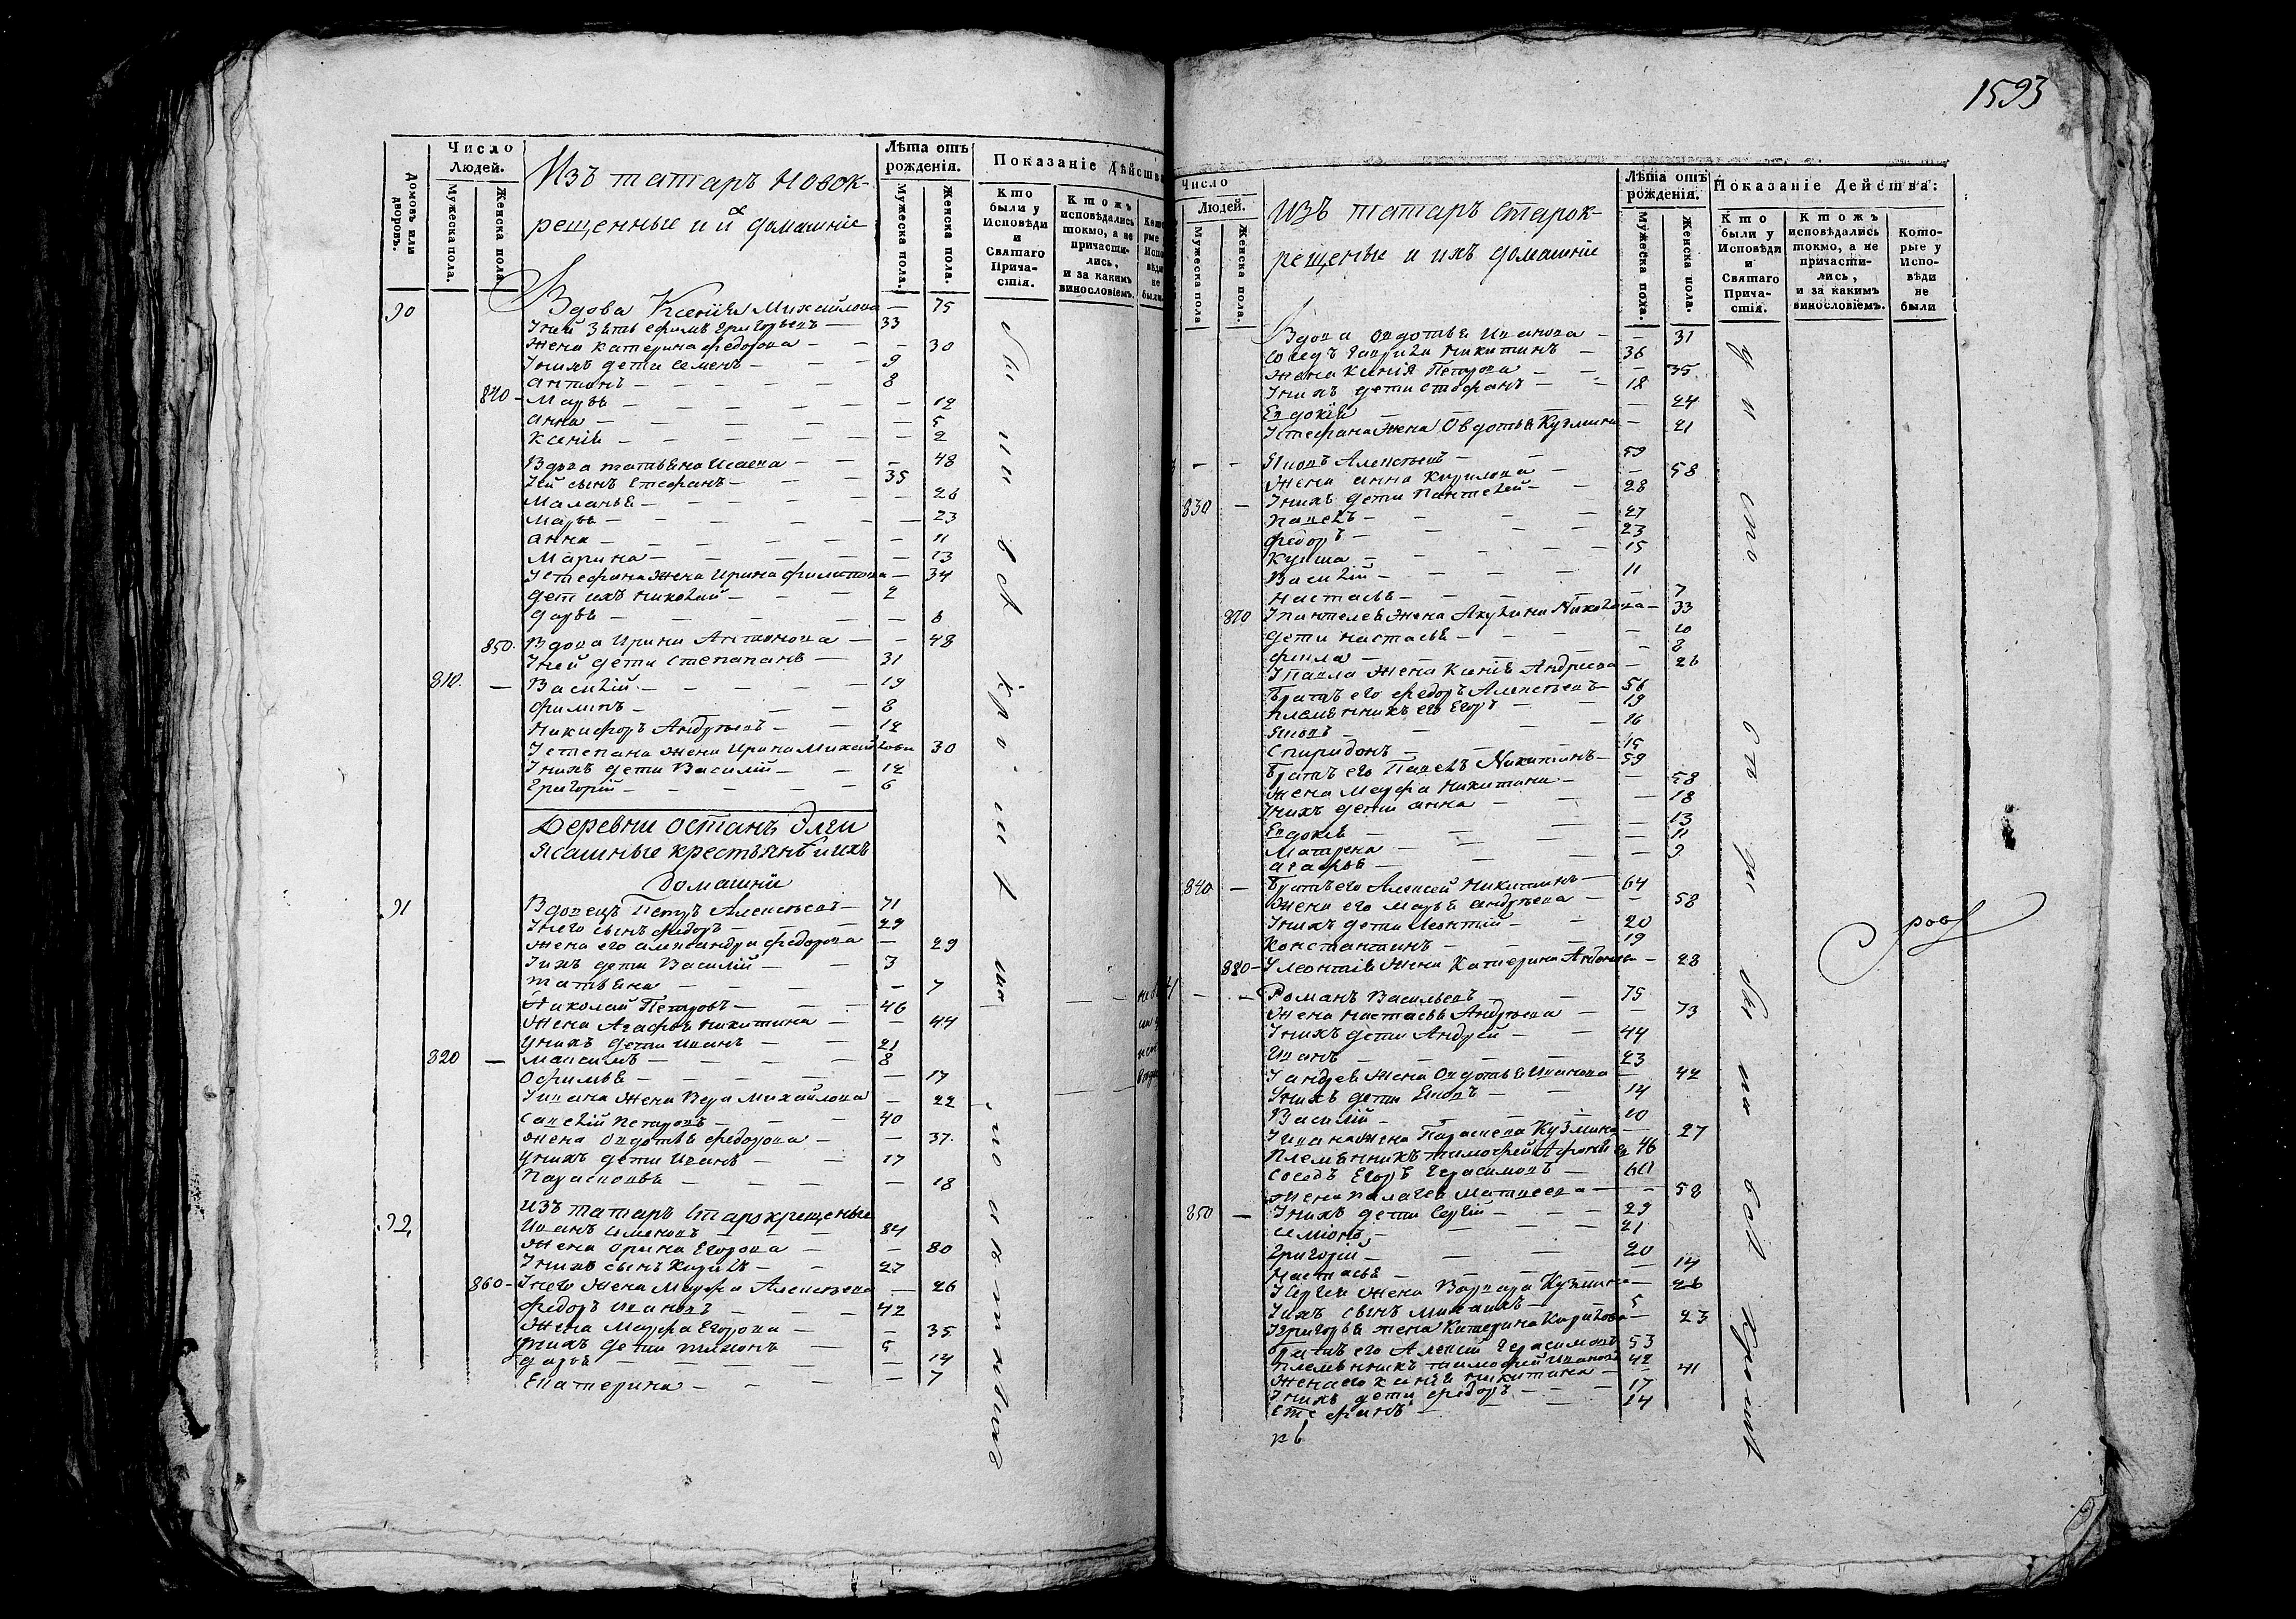 1593
Число
Людей.
Домовъ или дворовъ.
Мужеска пола.
Женска пола
Изъ татаръ новок-
рещенные и домашніе
Лѣта отъ
рожденія.
Мужеска пола.
Женска пола.
Показаніе Дѣйства
Кто были у Исповѣди и Святаго Прича- стія.
Ктожъ исповѣдались токмо, а не причасти- лись, и за какимъ винословіемъ.
90 Вдова Ксенія Михайлова — 75
Уней Зять ефимъ Григорьевъ — 33
Жена катерина федорова — 30
Унихъ дети Семенъ — 9
антонъ — 8
840 — Марья — 12
анна — 5
Ксенія — 2
Вдова татьяна Исаева — 48
Уей сынъ Стефанъ — 35
Маланья — 26
Марья — 23
анна — 11
Марина — 13
Устефана Жена Ирина филипова — 34
дети ихъ николай — 2
дарья — 6
850. Вдова Ирина Антонова — 48
Уней дети степапанъ — 31
810. — Василій — 19
филипъ — 8
Никифоръ Андреевъ — 12
Устепана Жена Ирина Михайлова 30
Унихъ дети Василій — 12
Григорій — 6
Деревни Останъ Элги
Ясашные крестьянѣ и ихъ
домашни
91 Вдовецъ Петръ Алексѣевъ — 71
Унего сынъ федоръ — 29
Жена его александра федорова — 29
Уихъ дети Василій — 3
татьяна — 7
Николай Петровъ — 46
Жена Агафья никитина — 44
Унихъ дети иванъ — 21
820 — максимъ — 8
Офимья — 17
Уивана Жена Вера Михайлова — 22
Савелій петровъ — 40
Жена Овдотья федорова — 37.
Унихъ дети Иванъ — 17
Парасковья — 18
изъ татаръ Старокрещеные
92 Иванъ Семеновъ — 84
Жена орина Егорова — 80
Унихъ сынъ Кирилъ — 27
860 — Унего Жена Марфа Алексѣева — 26
федоръ ивановъ — 42
Жена Марфа Егорова — 35
Унихъ дети тихонъ — 5
дарья — 14
Екатерина — 7
Число
Людей.
Мужеска пола
Женска пола.
изъ татаръ старок-
рещеные и ихъ домашніе
Лѣта отъ
рожденія.
Мужеска пола.
Женска пола.
Показаніе Дейсmва:
Кто были у Исповѣди и Святаго Прича- стія.
Ктожъ исповѣдались токмо, а не причасти- лись, и за какимъ винословіемъ.
Кото- рые у Испо- вѣди не были
Вдова Овдотья Иванова — 31
Соседъ Гаврила Никитинъ — 36
Жена Ксенія Петрова — 35
Унихъ дети Стефанъ — 18
Евдокія — 24
Устефана Жена Овдотья Кузмина — 21
— — Яковъ Алексѣевъ — 59
Жена анна Кирилова — 58
830 — Унихъ дети Пантелей — 28
Павелъ — 27
федоръ — 23
Кузма — 15
Василій — 11
Настасья — 7
870 Упантелея Жена Акулина Николаева — 33
дети настасья — 10
фекла — 8
Упавла Жена Ксенія Андреева — 26
Братъ его федоръ Алексѣевъ — 56
племянникъ его Егоръ — 19
Яковъ — 16
Спиридонъ — 15
Братъ его Павелъ Никитинъ — 59
Жена Марфа Никитина — 58
Унихъ дети анна — 18
Евдокія — 13
Матрена — 11
агафья — 9
840 — Братъ его Алексей Никитинъ — 64
Жена его Марья андреева — 58
Унихъ дети Леонтій — 20
Константинъ — 19
880 — Улеонтія Жена Катерина Антонова — 28
— — Романъ Васильевъ — 75
Жена Настасья Андреева — 73
Унихъ дети Андрей — 44
Иванъ — 23
Уандрея Жена Овдотья Иванова — 42
Унихъ дети Яковъ — 14
Василій — 10
Уивана Жена Параскева Кузмина — 27
Племянникъ тимофей 46
Соседъ Егоръ Герасимовъ — 60
Жена пелагея Матвеева — 58
850 — Унихъ дети Сергій — 29
Семіонъ — 21
Григорій — 20
Настасья — 14
Усергея Жена Варвара Кузмина — 26
Уихъ сынъ Михаилъ — 5
Угригорья жена Катерина Кирилова — 23
Братъ его Алексій Герасимовъ 53
Племянникъ тимофей Ивановъ 42
Жена его ксенія никитина — 41
Унихъ дети федоръ — 17
Стефанъ — 14